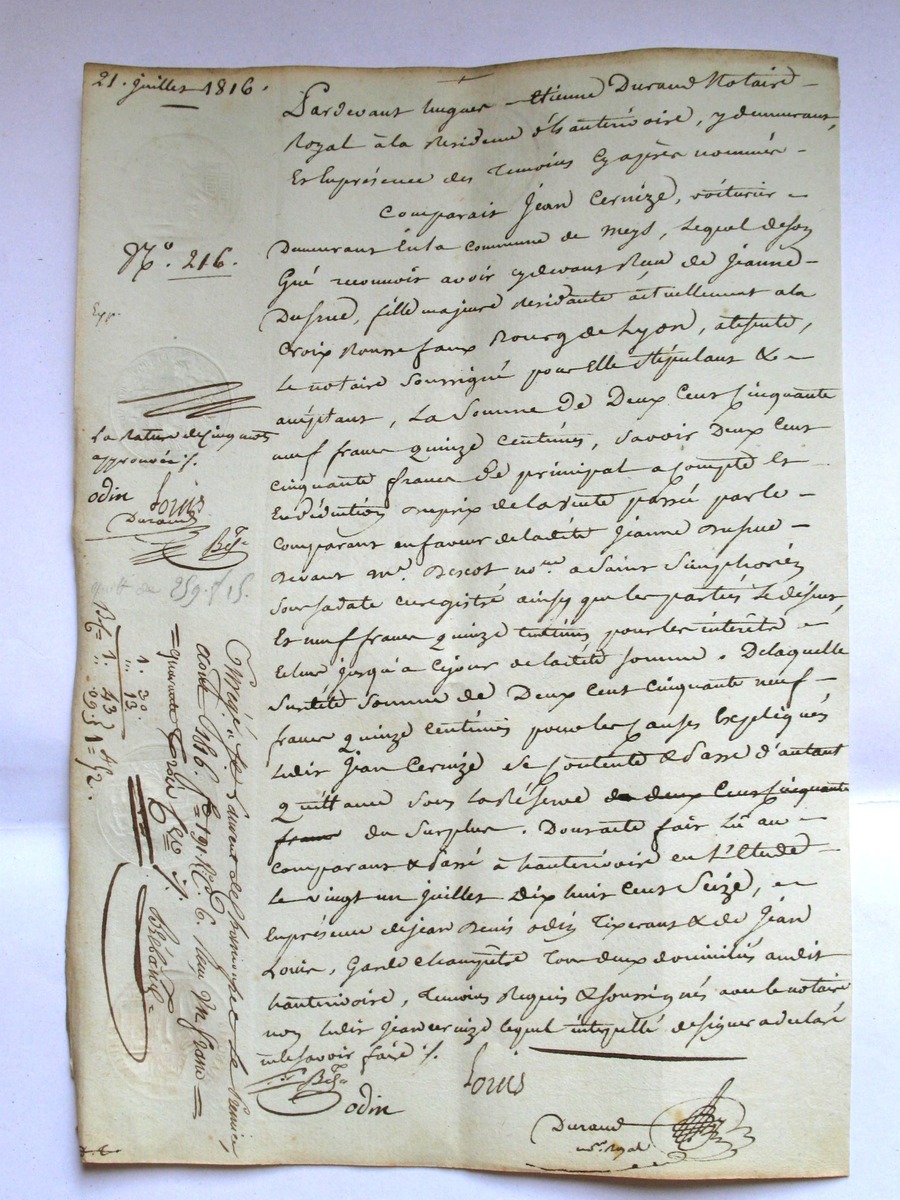 21. juillet 1816.
N.º 216.
Exp.
La Rature de Cinq mots
approuvée ./.
odin Louis
Durand
quitt de 259.f 15.
Pardevant hugues Etienne Durand Notaire
Royal à la Residence d'hauterivoire, y demeurant,
Et En présence des Temoins Cy après nommés
Comparait Jean Cernize, voiturier
Demeurant En la Commune de Meys, Lequel de Son
Gré reconnoit avoir cydevant Recu de Jeanne
fille majeure Residante actuellement a la
Croix Rousse faux Bourg de Lyon, absente,
Le notaire Soussigné pour Elle Stipulant &
aceptant, La Somme de Deux Cent Cinquante
neuf francs quinze Centimes, Savoir Deux Cent
Cinquante francs de principal a Compte et
En déduction du prix de la vente passé par le
Comparant en faveur de la dite Jeanne
Devant M.e Descot no.re a Saint Simphorien
Sous Sa date Enregistré ainsy que les parties Le disent,
Et neuf francs quinze Centimes pour les intérêts
Echus jusqu'à Ce jour de la dite Somme. De laquelle
Susdite Somme de Deux Cent Cinquante neuf
francs quinze Centimes pour les Causes Expliqués
Ledit Jean Cernize Se Contente & Passe d'autant
Quittance Sous La Réserve de deux Cent Cinquante
francs du Surplus. Dont acte fait Lû au
Comparant & Passé à hauterivoire en L'Etude
Le vingt un juillet Dix huit Cent Seize, en
En présence de jean Denis odin Tixerant & de Jean
Louis, Garde Champêtre Tous deux domiciliés audit
hauterivoire, Temoins Requis & Soussignés avec le notaire
non Ledit Jean Cernize lequel interpellé de signer a declaré
ne le Savoir faire ./.
odin
Louis
Durand
no.re Royal
Enregé à St Laurent de Chamousset Le premier
août 1816. f.º 191 R.º C. 6. Reçu un franc
quarante trois C.es ./.
1. 30.
" 13
1. 43
" 09
1 = 52.